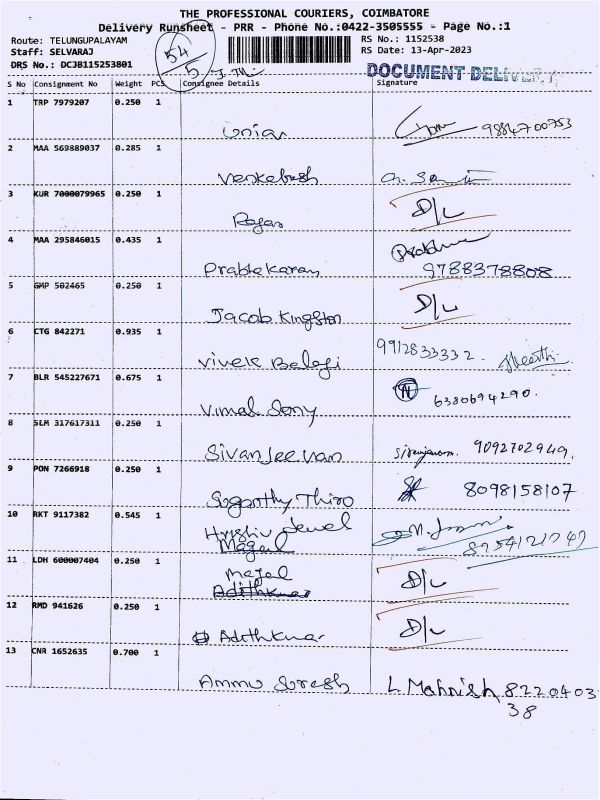 THE PROFESSIONAL COURIERS, COIMBATORE
Delivery Runsheet - PRR - Phone No.:0422-3505555 - Page No.:1
Route: TELUNGUPALAYAM RS No.: 1152538
Staff: SELVARAJ RS Date: 13-Apr-2023
DRS No.: DCJB115253801
54
5
DOCUMENT DELIVERY
S No Consignment No Weight PCS Consignee Details Signature
1 TRP 7979207 0.250 1
Union 9884700753
2 MAA 569889037 0.285 1
Venkebesh
3 KUR 7000079965 0.250 1
Rajan D/L
4 MAA 295846015 0.435 1
Prabhakaran 9788378808
5 GMP 502465 0.250 1
Jacob Kingston D/L
6 CTG 842271 0.935 1
Vivek Balaji 9912833332.
7 BLR 545227671 0.675 1
Vimal Sony N 6380694290.
8 SLM 317617311 0.250 1
Sivanjeevan 9092702949.
9 PON 7266918 0.250 1
8098158107
10 RKT 9117382 0.545 1
Jewel
11 LDH 600007404 0.250 1
D/L
12 RMD 941626 0.250 1
D/L
13 CNR 1652635 0.700 1
Ammu Suresh L Mahnish 8220403
38